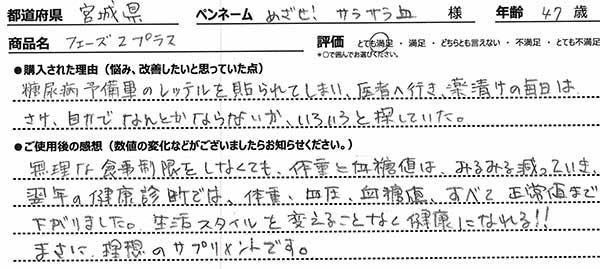 都道府県 宮城県 ペンネーム めざせ!サラサラ血 様 年齢 47 歳
商品名 フェーズ2プラス 評価 とても満足・満足・どちらとも言えない・不満足・とても不満足
*○で囲んでお選びください。
●購入された理由(悩み、改善したいと思っていた点)
糖尿病予備軍のレッテルを貼られてしまい、医者へ行き、薬漬けの毎日は
さけ、自力でなんとかならないか、いろいろと探していた。
●ご使用後の感想(数値の変化などがございましたらお知らせください。)
無理な食事制限をしなくても、体重と血糖値は、みるみる減っていき、
翌年の健康診断では、体重、血圧、血糖値、すべて正常値まで
下がりました。生活スタイルを変えることなく健康になれる!!
まさに理想のサプリメントです。